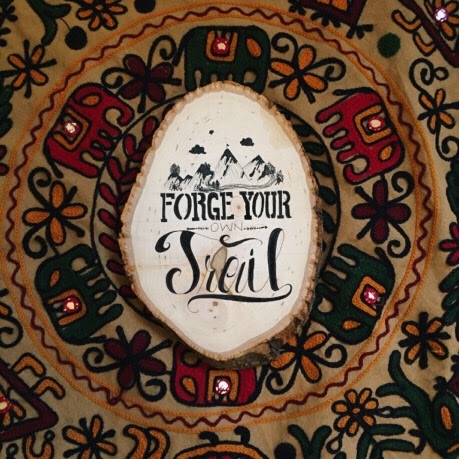 FORGE YOUR
OWN
Trail